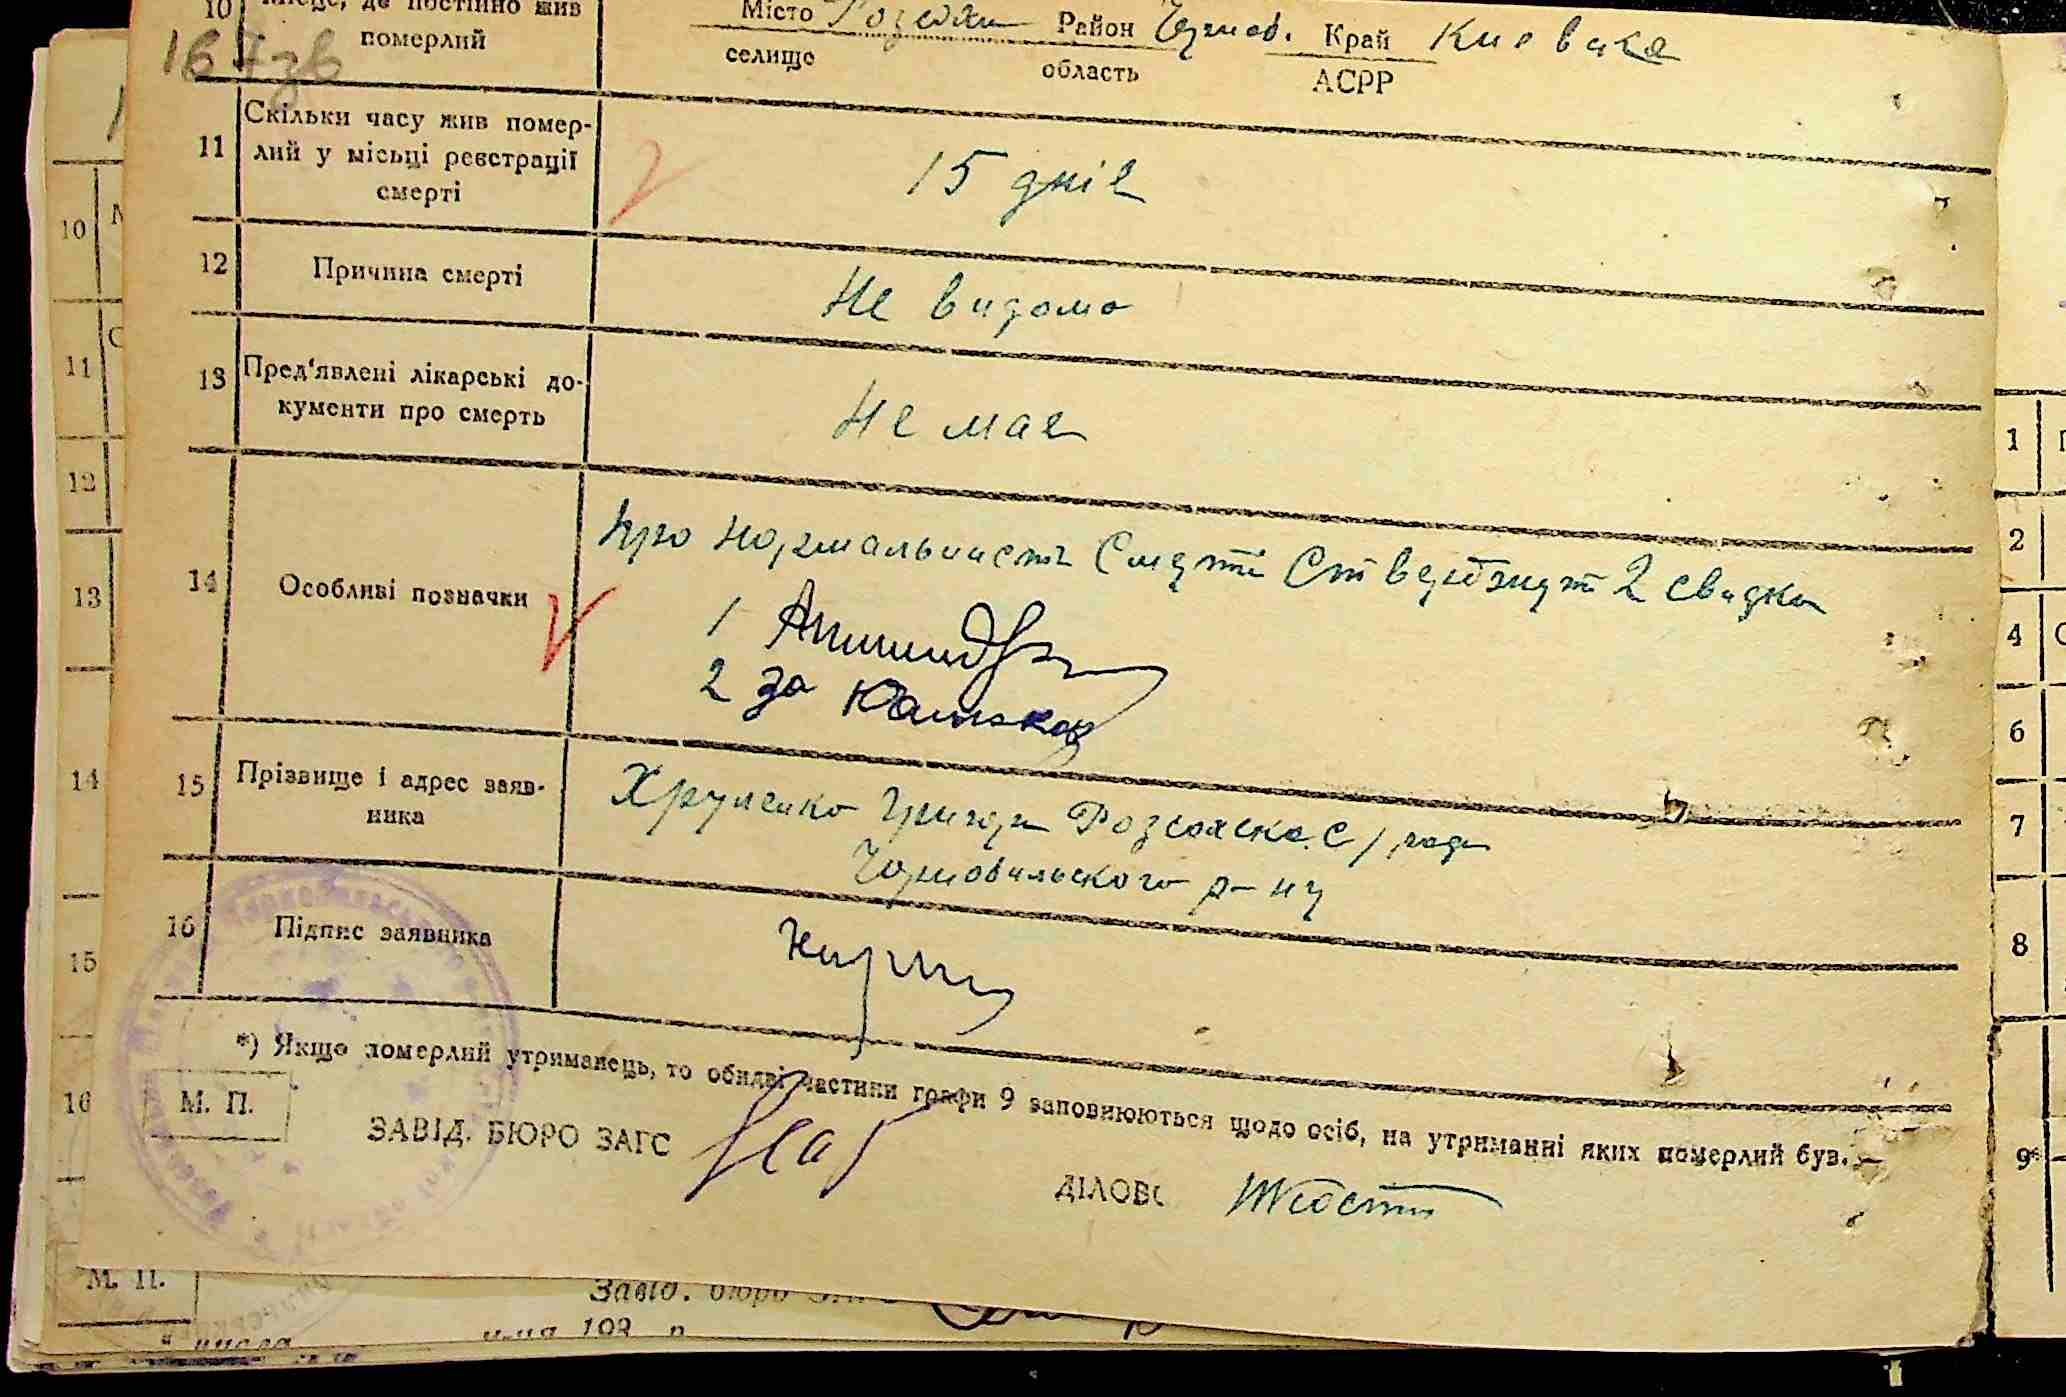 10 Місце, де постійно жив
померлий
167зв
Місто Розсохи Район Чорноб. Край Киевска
селище область АСРР
11 Скільки часу жив помер-
лий у місьці реєстрації
смерті
15 днів
12 Причина смерті
Не видомо
13 Пред'явлені лікарські до-
кументи про смерть
Не має
14 Особливі позначки
про нормальнисть Смерти Ствержують 2 свидки
1
2 за
15 Прізвище і адрес заяв-
ника
Хруленко Григори Розсохска С/ради
Чорнобильского р-ну
16 Підпис заявника
*) Якщо померлий утриманець, то обидві частини графи 9 заповнюються щодо осіб, на утриманні яких померлий був.
М. П.
ЗАВІД. БЮРО ЗАГС
ДІЛОВ
10
11
12
13
14
15
16
М. П.
Завід. бюро
числа 193 р.
1
2
4
6
7
8
9*